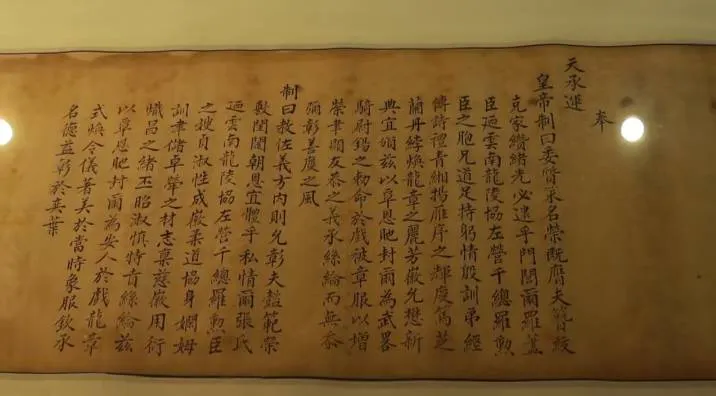 奉
天承運
皇帝制曰委質策名榮既膺夫簪紱
克家纘緒光必逮乎門閭爾羅蓋
臣迺雲南龍陵協左營千總羅勲
臣之胞兄道足持躬情殷訓弟經
傳詩禮青緗揚雁序之輝慶篤芝
蘭丹綍煥龍章之麗芳徽允懋新
典宜頒茲以覃恩貤封爾為武畧
騎尉錫之勅命於戲被章服以增
榮聿顯友恭之義承絲綸而無忝
彌彰善慶之風
制曰教佐義方內則允彰夫懿範榮
敷閨闈朝恩宜體乎私情爾張氏
迺雲南龍陵協左營千總羅勲臣
之嫂貞淑性成徽柔道協身嫻姆
訓聿儲卓犖之材志稟慈徽用衍
熾昌之緒丕昭淑慎特賁絲綸茲
以覃恩貤封爾為安人於戲龍章
式煥令儀著美於當時象服欽承
名德益彰於奕葉